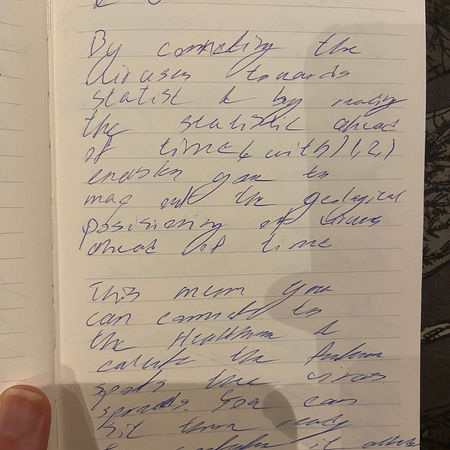 By connecting the
viruses towards
statist & by
the statistic ahead
of time, with (1,2,)
enables you to
map out the geological
positioning of virus
ahead of time
This mean you
can connect to
the Healthcare &
calculate the
spots the virus
spreads. You can
hit them
it